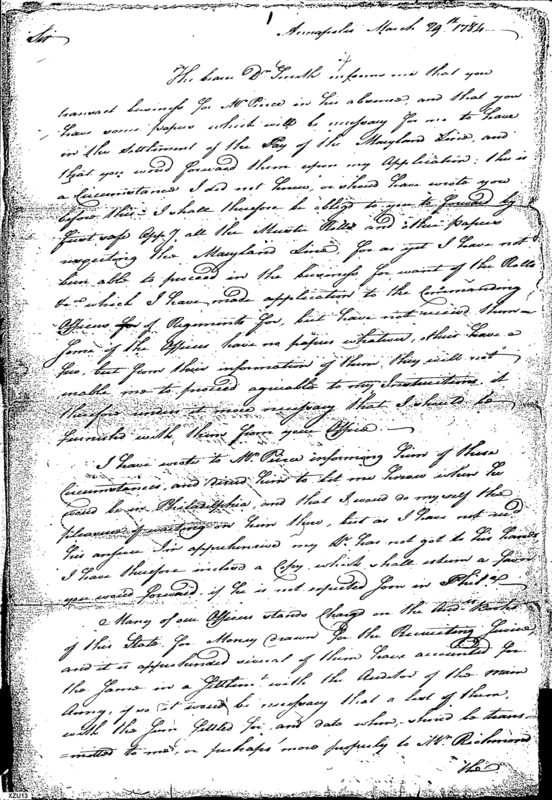 1
Annapolis March 29th 1784
Sir
The bearer Dr. informs me that you
transact business for Mr Pierce in his absence, and that you
have some papers which will be necessary for me to have
in the Settlement of the Pay of the Maryland Line, and
that you would forward them upon my Application; this is
a Circumstance I did not know, or should have wrote you
before this. I shall therefore be obliged to you to forward by
first safe Oppy all the Muster Rolls and other papers
respecting the Maryland Line for as yet I have not
been able to proceed in the business for want of the Rolls
&ca which I have made application to the Commanding
Officers of Regiments for, but have not received them
Some of the Officers have no papers whatever, others have a
few, but from their information of them, they will not
enable me to proceed agreeable to my Instructions, it
therefore renders it more necessary that I should be
furnished with them from your Office
I have wrote to Mr Pierce informing him of these
Circumstances, and him to let me know when he
would be in Philadelphia, and that I would do myself the
pleasure of waiting on him there, but as I have not recd
his answer I'm apprehensive my Lr has not got to his hands
I have therefore inclosed a Copy, which shall esteem a favor
you would forward, if he is not expected soon in Phila
Many of our Officers stands Charged on the Audrs Books
of this State for Money drawn for the Recruiting Service,
and it is apprehended several of them have accounted for
the same in a Settlemt with the Auditor of the main
Army, if so it would be necessary that a list of them,
with the sum settled for, and date when, should be trans-
=mitted to me, or perhaps more properly to Mr Richmond
the
XZU13